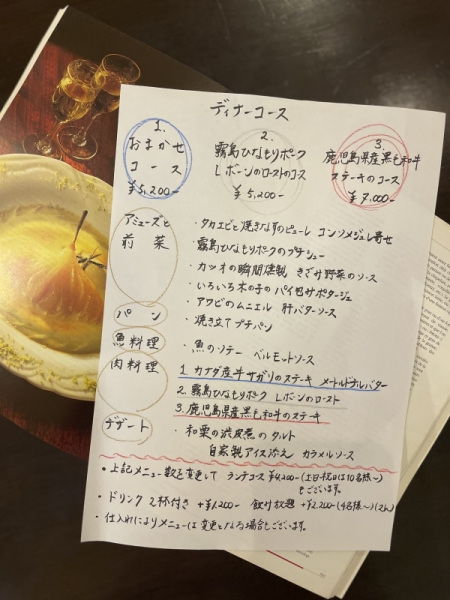 ディナーコース
1.
おまかせ
コース
¥5,200-
2.
霧島ひなもりポーク
Lボーンのローストのコース
¥5,200-
3.
鹿児島県産黒毛和牛
ステーキのコース
¥7,000-
アミューズと
前菜
・タカエビと焼きなすのピューレ コンソメジュレ寄せ
・霧島ひなもりポークのプチシュー
・カツオの瞬間燻製 きざみ野菜のソース
・いろいろ木の子のパイ包サポタージュ
・アワビのムニエル 肝バターソース
パン
・焼き立てプチパン
魚料理
・魚のソテー ベルモットソース
肉料理
1.カナダ産牛サガリのステーキ メートルドテルバター
2.霧島ひなもりポーク Lボーンのロースト
3.鹿児島県産黒毛和牛のステーキ
デザート
・和栗の渋皮煮のタルト
自家製アイス添え カラメルソース
・上記メニュー数を変更して ランチコース ¥4,200-(土日祝日は10名様〜)
もございます。
・ドリンク 2杯付き +¥1,200- 飲み放題 +¥2,200-(4名様〜)
・仕入れによりメニューは変更となる場合もございます。